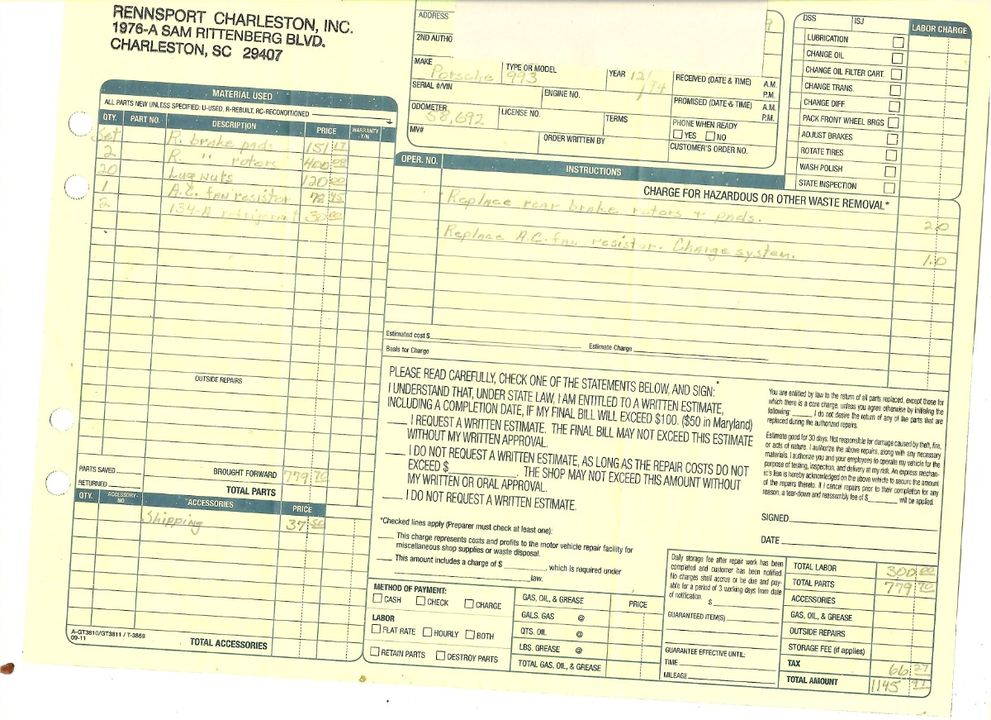 RENNSPORT CHARLESTON, INC.
1976-A SAM RITTENBERG BLVD.
CHARLESTON, SC 29407
MATERIAL USED
ALL PARTS NEW UNLESS SPECIFIED: U-USED, R-REBUILT, RC-RECONDITIONED
QTY. PART NO. DESCRIPTION PRICE WARRANTY
Set R. brake pads 151 17
2 R. " rotors 400 08
20 Lug nuts 120 00
1 A.C. fan resistor
2 134-A refrigerant 30 00
OUTSIDE REPAIRS
PARTS SAVED BROUGHT FORWARD 779 70
RETURNED TOTAL PARTS
QTY. ACCESSORY NO. ACCESSORIES PRICE
Shipping 37
A-GT3810/GT3811 / T-3869
09-11
TOTAL ACCESSORIES
ADDRESS
2ND AUTHO
MAKE Porsche
TYPE OR MODEL 993
YEAR 12/94
RECEIVED (DATE & TIME) A.M. P.M.
SERIAL #/VIN
ENGINE NO.
PROMISED (DATE & TIME) A.M. P.M.
ODOMETER 58,692
LICENSE NO.
TERMS
PHONE WHEN READY
YES NO
MV#
ORDER WRITTEN BY
CUSTOMER'S ORDER NO.
DSS ISJ LABOR CHARGE
LUBRICATION
CHANGE OIL
CHANGE OIL FILTER CART.
CHANGE TRANS.
CHANGE DIFF.
PACK FRONT WHEEL BRGS
ADJUST BRAKES
ROTATE TIRES
WASH POLISH
STATE INSPECTION
OPER. NO. INSTRUCTIONS
CHARGE FOR HAZARDOUS OR OTHER WASTE REMOVAL*
Replace rear brake rotors + pads. 2.0
Replace A.C. fan resistor. Charge system. 1.0
Estimated cost $ Estimate Charge
Basis for Charge
PLEASE READ CAREFULLY, CHECK ONE OF THE STATEMENTS BELOW, AND SIGN:*
I UNDERSTAND THAT, UNDER STATE LAW, I AM ENTITLED TO A WRITTEN ESTIMATE,
INCLUDING A COMPLETION DATE, IF MY FINAL BILL WILL EXCEED $100. ($50 in Maryland)
I REQUEST A WRITTEN ESTIMATE. THE FINAL BILL MAY NOT EXCEED THIS ESTIMATE
WITHOUT MY WRITTEN APPROVAL.
I DO NOT REQUEST A WRITTEN ESTIMATE, AS LONG AS THE REPAIR COSTS DO NOT
EXCEED $ . THE SHOP MAY NOT EXCEED THIS AMOUNT WITHOUT
MY WRITTEN OR ORAL APPROVAL.
I DO NOT REQUEST A WRITTEN ESTIMATE.
*Checked lines apply (Preparer must check at least one):
This charge represents costs and profits to the motor vehicle repair facility for
miscellaneous shop supplies or waste disposal.
This amount includes a charge of $ , which is required under
law.
You are entitled by law to the return of all parts replaced, except those for
which there is a core charge, unless you agree otherwise by initialing the
following: I do not desire the return of any of the parts that are
replaced during the authorized repairs.
Estimate good for 30 days. Not responsible for damage caused by theft, fire,
or acts of nature. I authorize the above repairs, along with any necessary
materials. I authorize you and your employees to operate my vehicle for the
purpose of testing, inspection, and delivery at my risk. An express mechan-
ic's lien is hereby acknowledged on the above vehicle to secure the amount
of the repairs thereto. If I cancel repairs prior to their completion for any
reason, a tear-down and reassembly fee of $ will be applied.
SIGNED
DATE
METHOD OF PAYMENT:
CASH CHECK CHARGE
LABOR
FLAT RATE HOURLY BOTH
RETAIN PARTS DESTROY PARTS
GAS, OIL, & GREASE PRICE
GALS. GAS @
QTS. OIL @
LBS. GREASE @
TOTAL GAS, OIL, & GREASE
Daily storage fee after repair work has been
completed and customer has been notified.
No charges shall accrue or be due and pay-
able for a period of 3 working days from date
of notification. $
GUARANTEED ITEM(S)
GUARANTEE EFFECTIVE UNTIL:
TIME
MILEAGE
TOTAL LABOR 300 00
TOTAL PARTS 779 70
ACCESSORIES
GAS, OIL, & GREASE
OUTSIDE REPAIRS
STORAGE FEE (if applies)
TAX 66 27
TOTAL AMOUNT 1145 97